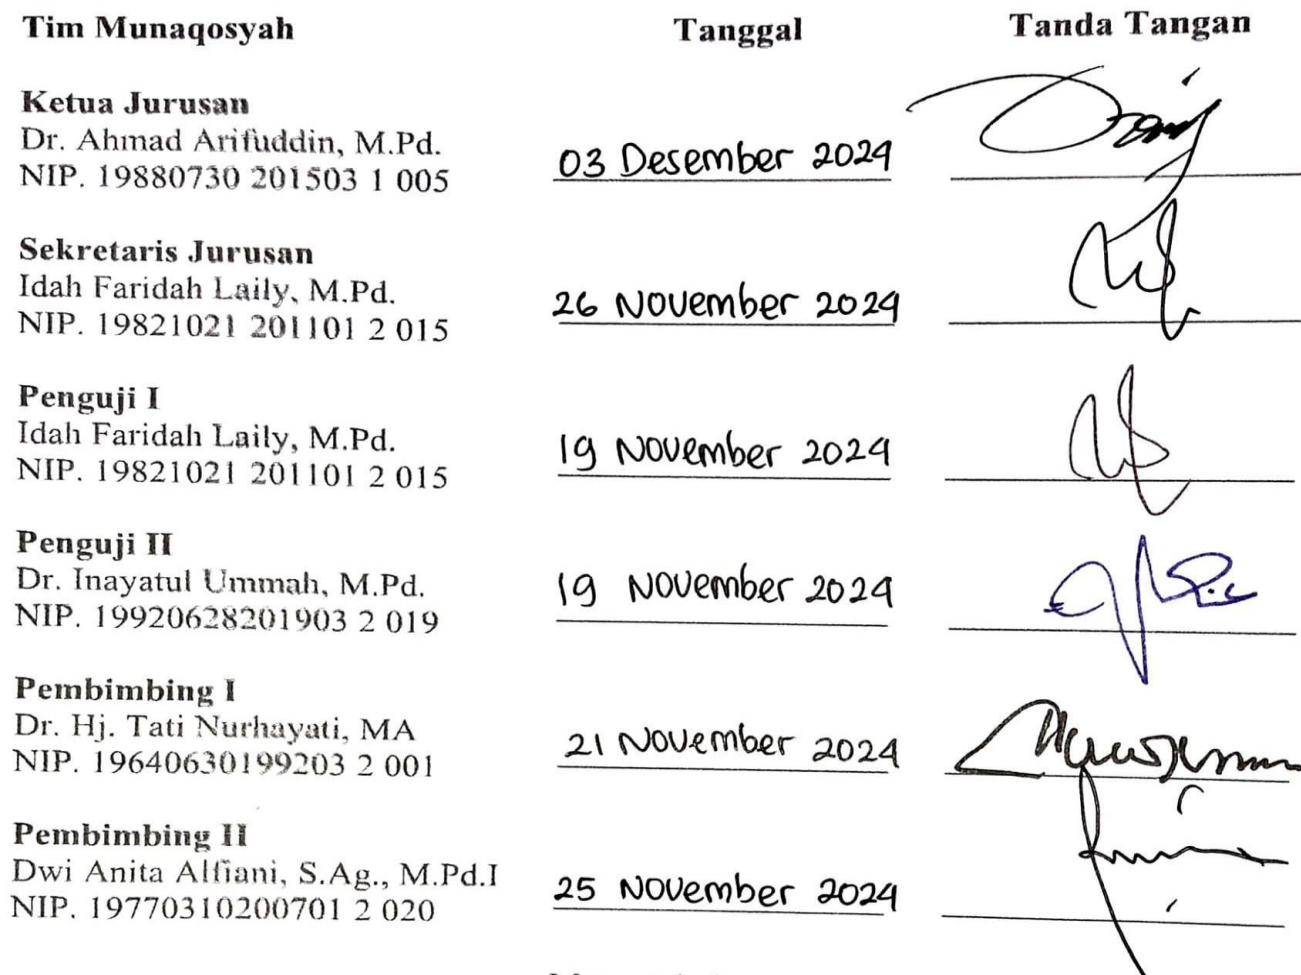 Tim Munaqosyah Tanggal Tanda Tangan
Ketua Jurusan
Dr. Ahmad Arifuddin, M.Pd.
NIP. 19880730 201503 1 005 03 Desember 2024
Sekretaris Jurusan
Idah Faridah Laily, M.Pd.
NIP. 19821021 201101 2 015 26 November 2024
Penguji I
Idah Faridah Laily, M.Pd.
NIP. 19821021 201101 2 015 19 November 2024
Penguji II
Dr. Inayatul Ummah, M.Pd.
NIP. 19920628201903 2 019 19 November 2024
Pembimbing I
Dr. Hj. Tati Nurhayati, MA
NIP. 19640630199203 2 001 21 November 2024
Pembimbing II
Dwi Anita Alfiani, S.Ag., M.Pd.I
NIP. 19770310200701 2 020 25 November 2024